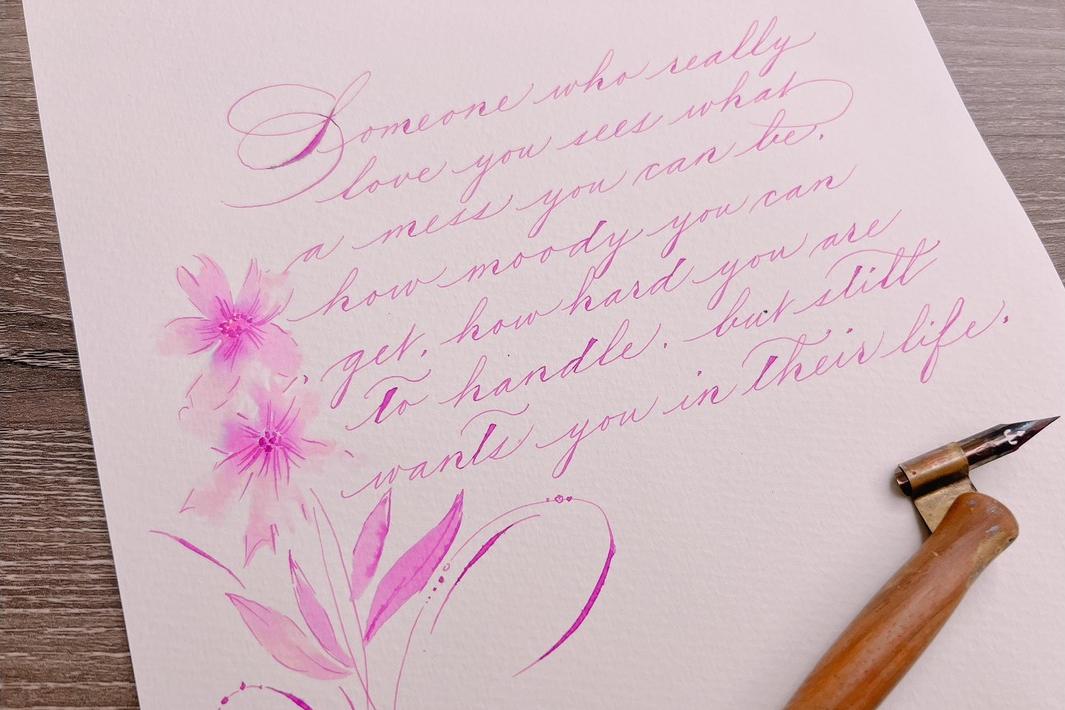 Someone who really
love you sees what
a mess you can be,
how moody you can
get, how hard you are
to handle, but still
wants you in their life.